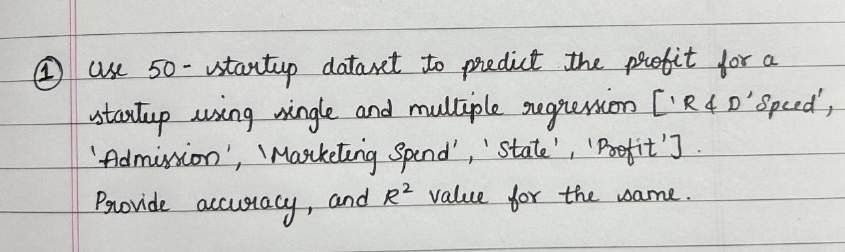 ① Use 50 - startup dataset to predict the profit for a
startup using single and multiple regression ['R & D' Speed',
'Admission', 'Marketing Spend', 'State', 'Profit'].
Provide accuracy, and R² value for the same.